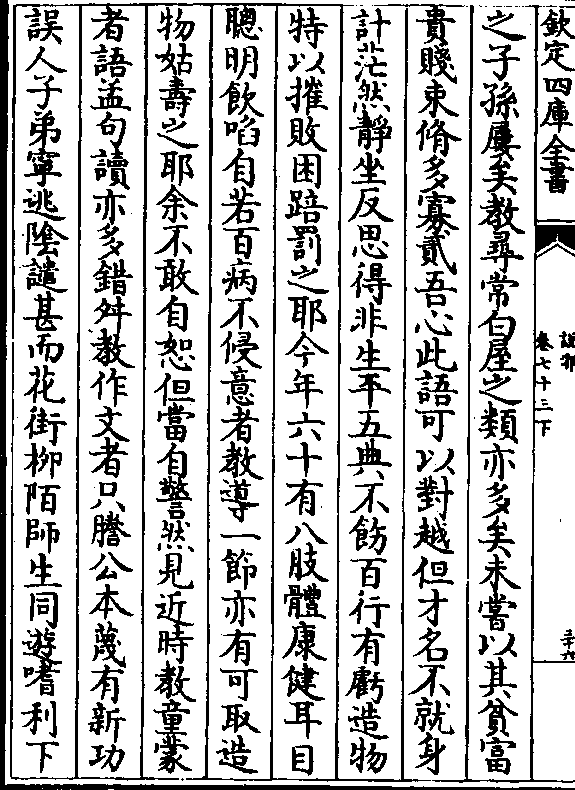 欽定四庫全書
說郛
卷七十三下
三十六
之子孫屢矣教尋常白屋之類亦多矣未嘗以其貧富
貴賤束脩多寡貳吾心此語可以對越但才名不就身
計茫然靜坐反思得非生平五典不飭百行有虧造物
特以摧敗困踣罰之耶今年六十有八肢體康健耳目
聰明飲啗自若百病不侵意者教導一節亦有可取造
物姑壽之耶余不敢自恕但當自警然見近時教童蒙
者語孟句讀亦多錯舛教作文者只謄公本蔑有新功
誤人子弟寧逃陰譴甚而花街柳陌師生同遊嗜利下